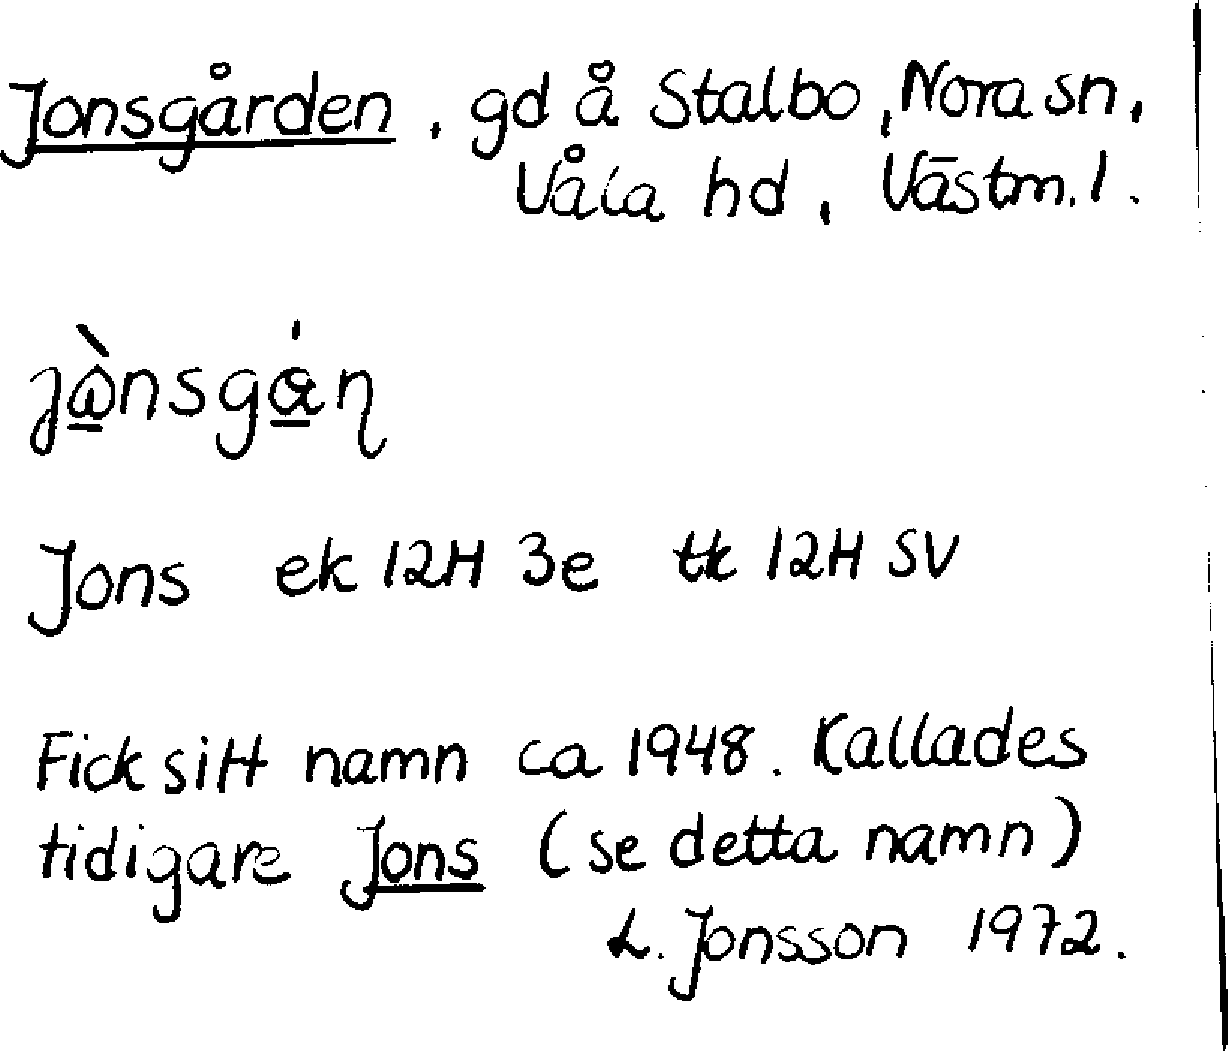 Jonsgården, gd å Stalbo, Nora sn,
Våla hd, Västm. l.
Jons ek 12H 3e tk 12H SV
Fick sitt namn ca 1948. Kallades
tidigare Jons (se detta namn)
L. Jonsson 1972.